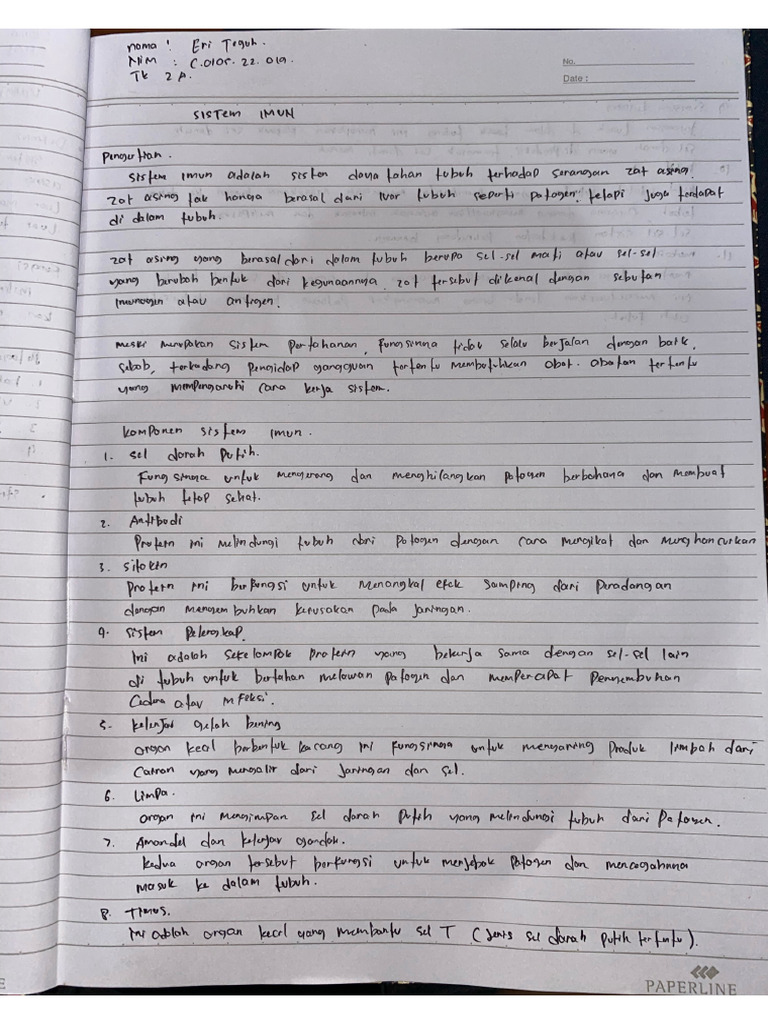 nama : Eri Teguh.
Nim : C.0105.22.019
Tk 2A.
No.
Date :
SISTEM IMUN
Pengertian.
Sistem imun adalah sistem daya tahan tubuh terhadap serangan zat asing.
zat asing tak hanya berasal dari luar tubuh seperti patogen, tetapi juga terdapat
di dalam tubuh.
zat asing yang berasal dari dalam tubuh berupa sel-sel mati atau sel-sel
yang berubah bentuk dari kegunaannya. zat tersebut dikenal dengan sebutan
imunogen atau antigen.
meski merupakan sistem pertahanan, fungsinya tidak selalu berjalan dengan baik.
sebab, terkadang pengidap gangguan tertentu membutuhkan obat-obatan tertentu
yang mempengaruhi cara kerja sistem.
Komponen sistem imun.
1. Sel darah putih.
Fungsinya untuk menyerang dan menghilangkan patogen berbahaya dan membuat
tubuh tetap sehat.
2. Antibodi
Protein ini melindungi tubuh dari patogen dengan cara mengikat dan menghancurkan
3. Sitokin
Protein ini berfungsi untuk menangkal efek samping dari peradangan
dengan menyembuhkan kerusakan pada jaringan.
4. Sistem Pelengkap.
Ini adalah sekelompok protein yang bekerja sama dengan sel-sel lain
di tubuh untuk bertahan melawan patogen dan mempercepat penyembuhan
cedera atau infeksi.
5. Kelenjar getah bening
organ kecil berbentuk kacang ini fungsinya untuk menyaring produk limbah dari
cairan yang mengalir dari jaringan dan sel.
6. Limpa.
organ ini menyimpan sel darah putih yang melindungi tubuh dari patogen.
7. Amandel dan kelenjar gondok.
kedua organ tersebut berfungsi untuk menjebak patogen dan mencegahnya
masuk ke dalam tubuh.
8. Timus.
ini adalah organ kecil yang membantu sel T (jenis sel darah putih tertentu).
PAPERLINE